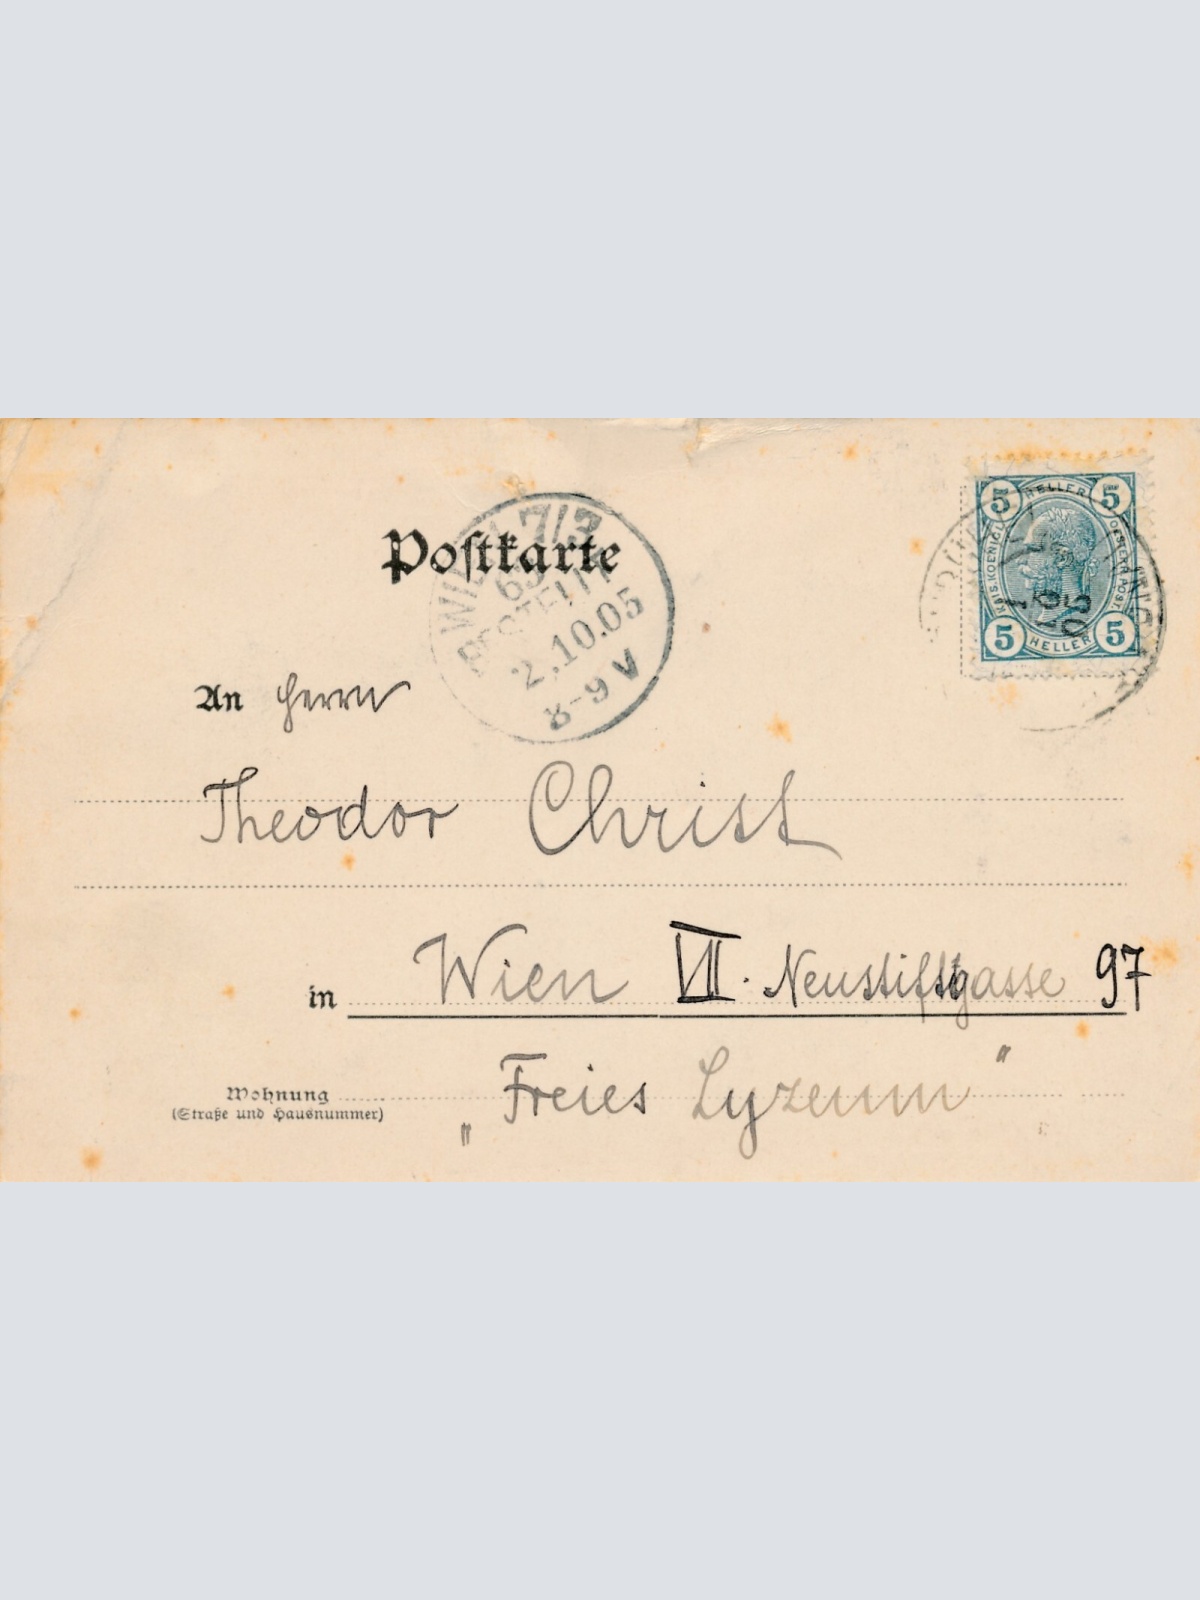 Postkarte
WIEN 7/3
63
BESTELLT
2.10.05
8-9 V
5 HELLER 5
KAIS. KOENIGL. OESTERR. POST.
5 HELLER 5
An Herrn
Theodor Christ
in Wien VII. Neustiftgasse 97
Wohnung
(Straße und Hausnummer)
„Freies Lyzeum"